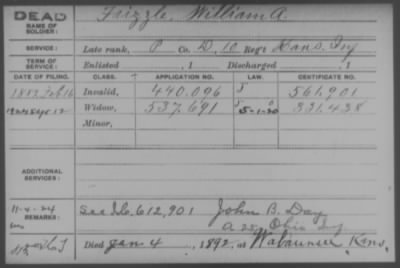 DEAD
NAME OF SOLDIER: Frizzle, William A.
SERVICE: Late rank, P Co. D, 10 Reg't Kans. Inf
TERM OF SERVICE: Enlisted , 1 Discharged , 1
DATE OF FILING. CLASS. APPLICATION NO. LAW. CERTIFICATE NO.
1882 Feb 16 Invalid, 440.096 561.901
1924 Sept 12 Widow, 537.691 5-1-20 331.438
Minor,
ADDITIONAL SERVICES:
11-4-24 See 612,901 John B. Day
REMARKS: A 25 Ohio Inf
Died Jan 4, 1892, at Wabaunsee, Kans.